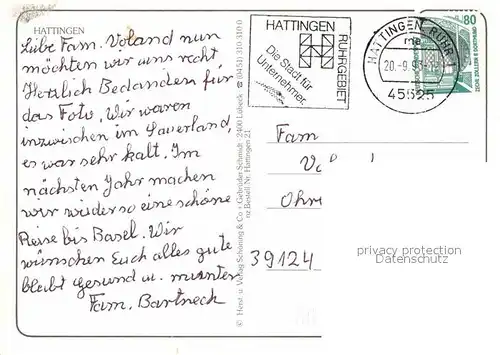 HATTINGEN
Liebe Fam. Voland nun
möchten wir uns recht
Herzlich Bedanken für
das Foto, Wir waren
inzwischen im Sauerland,
es war sehr kalt. Im
nächsten Jahr machen
wir wieder so eine schöne
Reise bis Basel. Wir
wünschen Euch alles gute
bleibt gesund u. munter
Fam. Bartneck
© Herst. u. Verlag Schöning & Co · Gebrüder Schmidt · 2400 Lübeck · ✆ (0451) 310 310 0
Bestell Nr. Hattingen 21
HATTINGEN
RUHRGEBIET
Die Stadt für
Unternehmer
HATTINGEN, RUHR 1
ma
20.-9.9
45525
80
Fam
V
Ohr
39124
privacy protection
Datenschutz